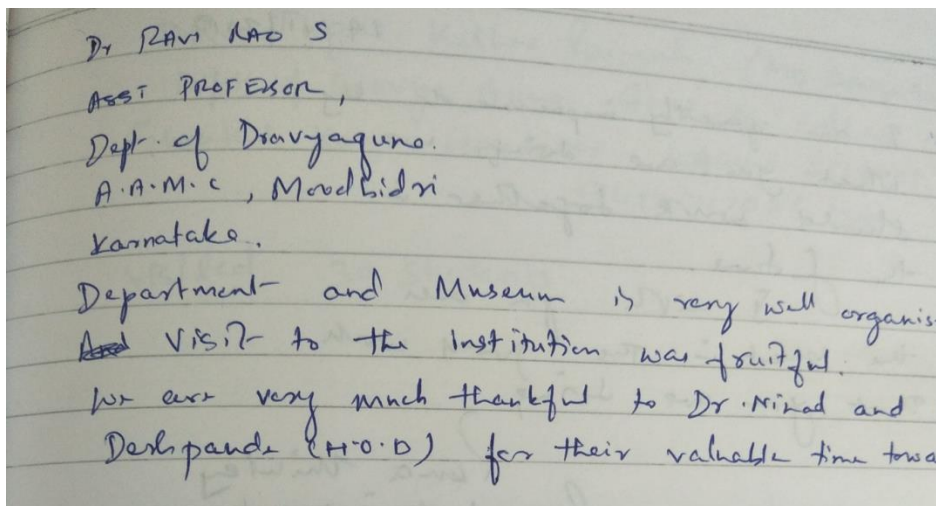 Dr RAVI RAO S
ASST PROFESSOR,
Dept. of Dravyaguna.
A.A.M.C, Moodbidri
Karnataka.
Department and Museum is very well organis
Visit to the institution was fruitful.
We are very much thankful to Dr. Ninad and
Deshpande (H.O.D) for their valuable time towa